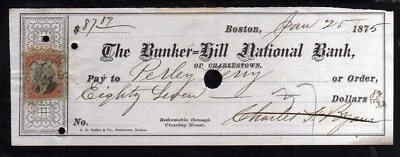 $87.50 Boston, Jan 25 1875
The Bunker-Hill National Bank,
OF CHARLESTOWN.
Pay to Perley or Order,
Eighty Seven Dollars
Redeemable through
Clearing House.
Charles